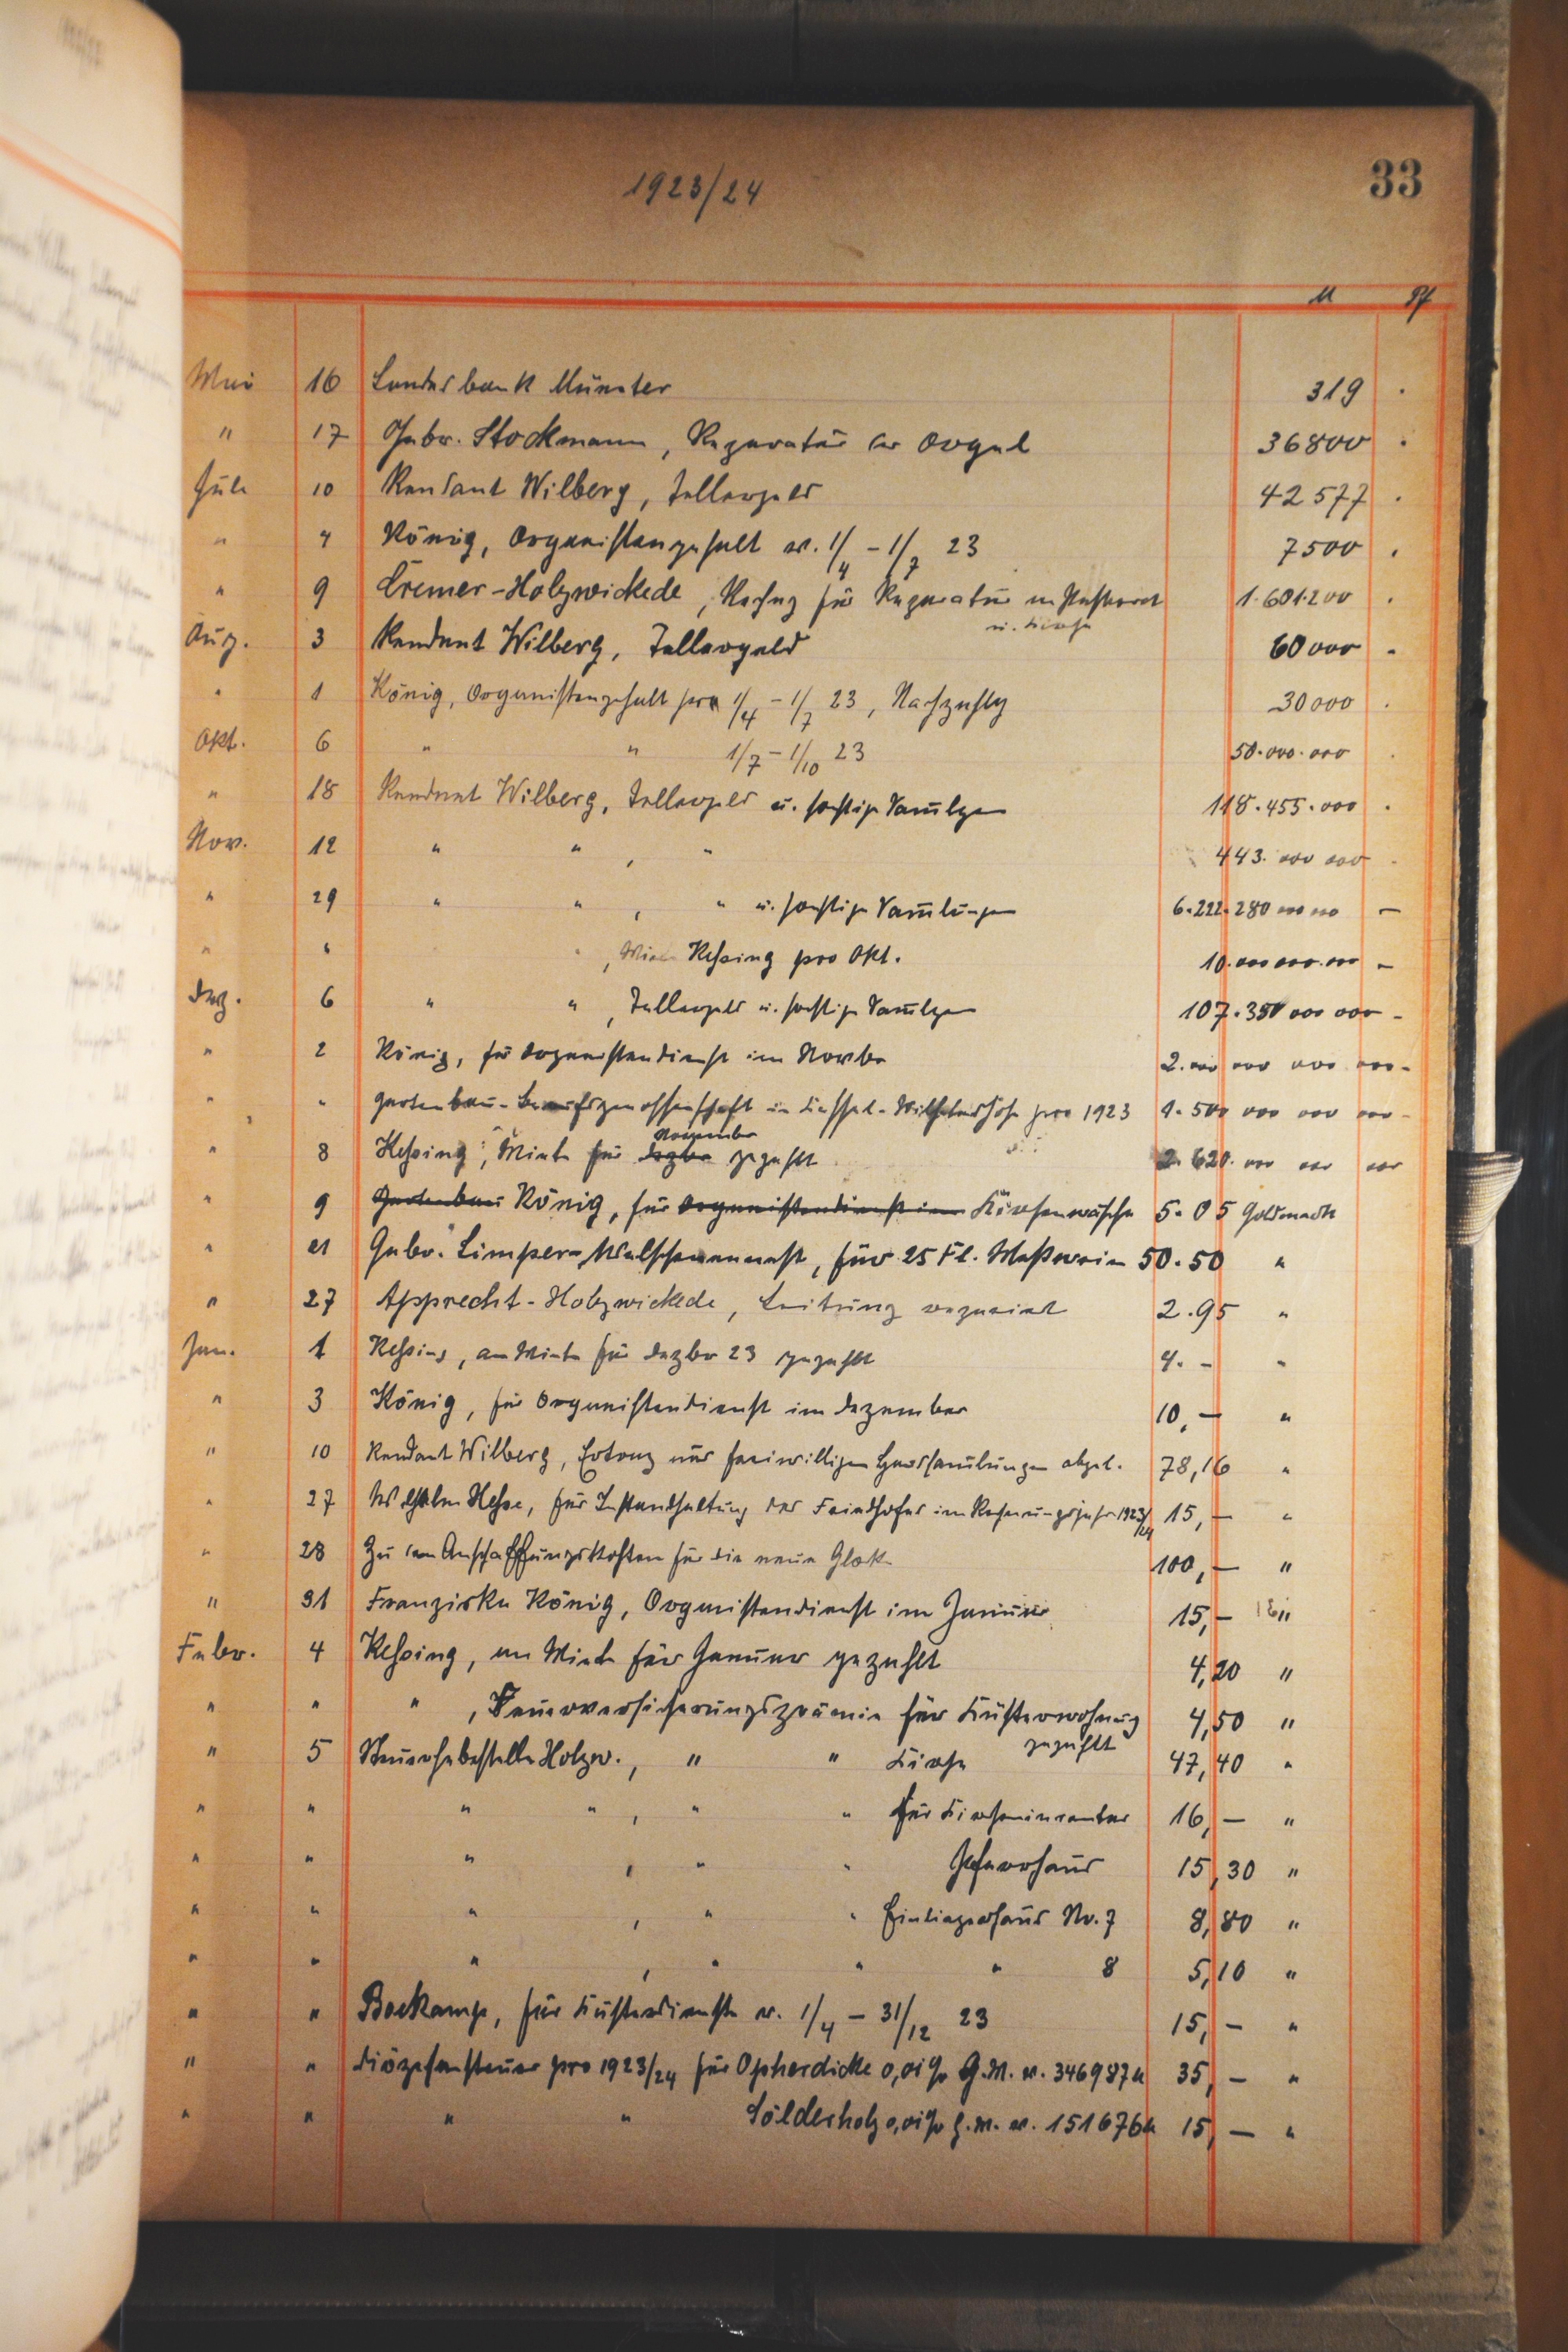 1923/24
33
M Pf
Mai 16 Landesbank Münster 319 .
" 17 Gebr. Stockmann, Reparatur der Orgel 36800 .
Juli 10 Rendant Wilberg, Tellergeld 42577 .
" 4 König, Organistengehalt v. 1/4 - 1/7 23 7500 .
" 9 Cremer-Holzwickede, Rechng für Reparatur im Pastorat 1.601.200 .
u. Kirche
Aug. 3 Rendant Wilberg, Tellergeld 60000 .
" 1 König, Organistengehalt pro 1/4 - 1/7 23, Nachzahlg 30000 .
Okt. 6 " " 1/7 - 1/10 23 50.000.000 .
" 18 Rendant Wilberg, Tellergeld u. sonstige Samlgen 118.455.000 .
Nov. 12 " " , " 443. 000 000 .
" 29 " " , " u. sonstige Samlungen 6.222.280 000 000 -
" " " , Miete Kessing pro Okt. 10.000 000.000 -
Dez. 6 " " , Tellergeld u. sonstige Samlgen 107.350 000 000 -
" 2 König, für Organistendienst im Novbr 2.000 000 000 000 -
" " Gartenbau-Berufsgenossenschaft in Kassel-Wilhelmshöhe pro 1923 1.500 000 000 000 -
November
" 8 Kessing, Miete für Dezbr gezahlt 2.620. 000 000 000
" 9 Gartenbau König, für Organistendienst im Kirchenwäsche 5.05 Goldmark
" 21 Gebr. Limper-Welschenennest, für 25 Fl. Meßwein 50.50 "
" 27 Apprecht-Holzwickede, Leitung repariert 2.95 "
Jan. 1 Kessing, an Miete für Dezbr 23 gezahlt 4. - "
" 3 König, für Organistendienst im Dezember 10,- "
" 10 Rendant Wilberg, Ertrag aus freiwilligen Haussamlungen abgel. 78,16 "
" 27 Wilhelm Hesse, für Instandhaltung des Friedhofes im Rechnungsjahr 1923/24 15,- "
" 28 Zu den Anschaffungskosten für die neue Glocke 100,- "
" 31 Franziska König, Organistendienst im Januar 15,- "
Febr. 4 Kessing, an Miete für Januar gezahlt 4,20 "
" " " , Feuerversicherungsprämie für Küsterwohnung 4,50 "
gezahlt
" 5 Steuerhebestelle Holzw., " " Kirche 47,40 "
" " " " , " " für Kircheninventar 16,- "
" " " , " " Pfarrhaus 15,30 "
" " " , " " Einliegerhaus Nr. 7 8,80 "
" " " , " " " 8 5,10 "
" " Boekamp, für Küsterdienste v. 1/4 - 31/12 23 15,- "
" " Diözesansteuer pro 1923/24 für Opherdicke G.M. v. 346987 M 35,- "
" " " " Sölderholz G.M. v. 151676 M 15,- "